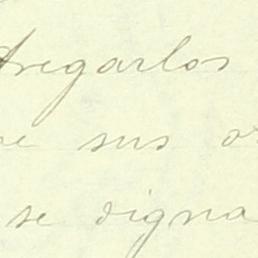 tregarlos
re sus or
se digna